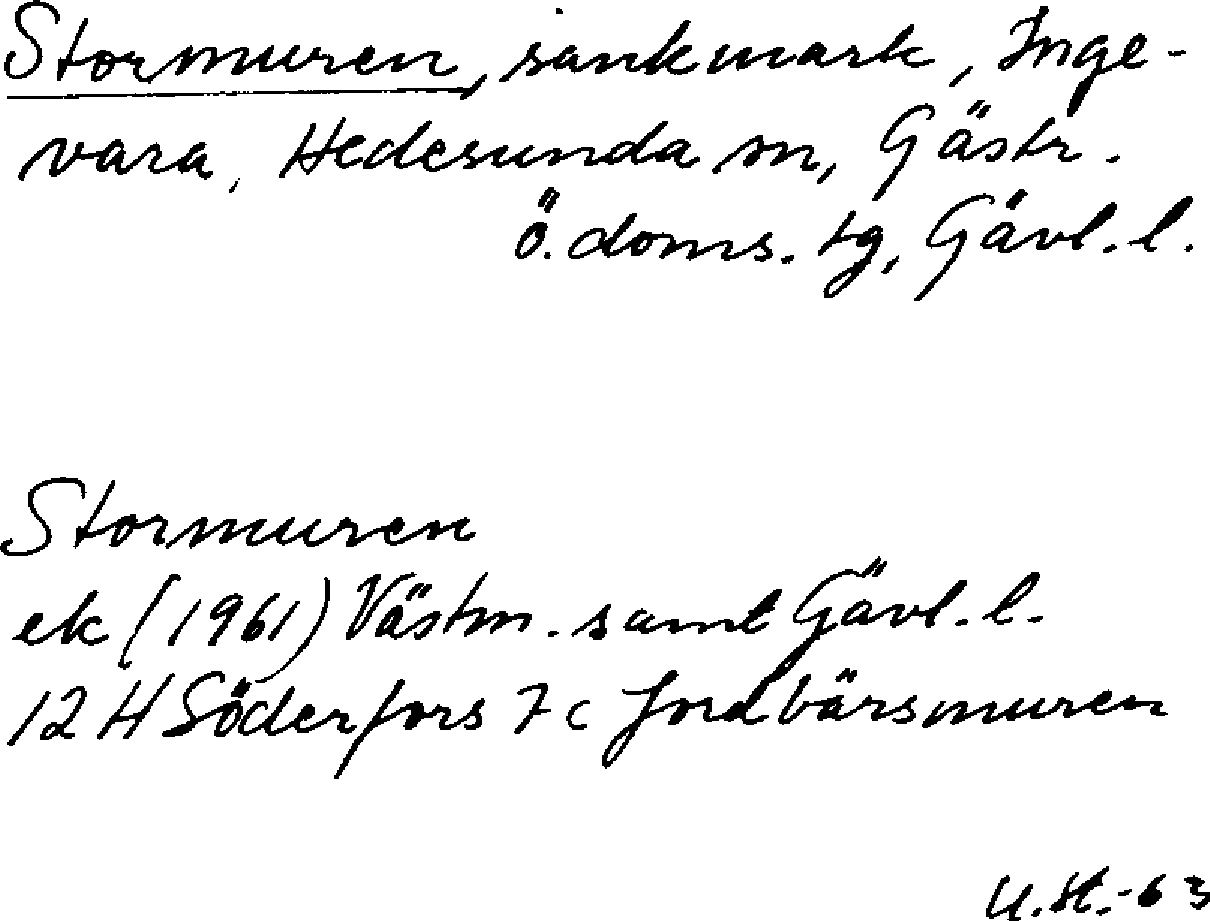 Stormuren, sankmark, Inge-
vara, Hedesunda sn, Gästr.
ö. doms. tg, Gävl. l.
Stormuren
ek (1961) Västm. samt Gävl. l.
12 H Söderfors 7 c Jordbärsmuren
U.H.-63